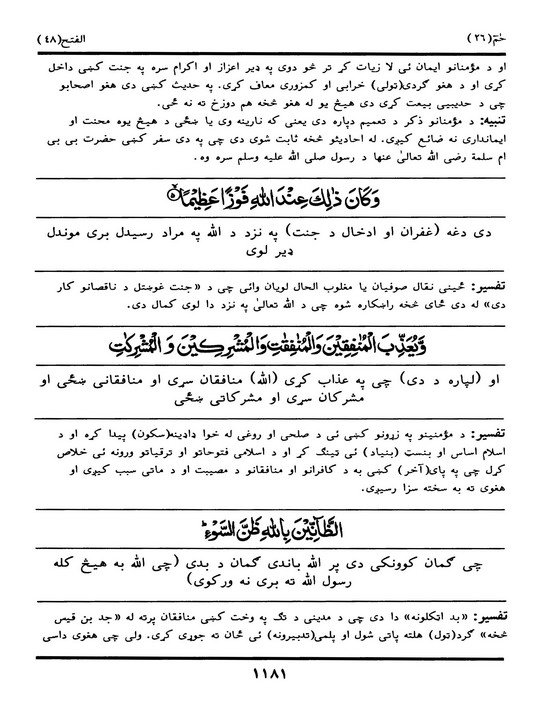 حٰمٓ(٢٦)
الفتح(٤٨)
او د مؤمنانو ايمان ئی لا زيات كړ تر څو دوی په ډير اعزاز او اكرام سره په جنت كښی داخل
كړی او د هغو ګردی(ټولی) خرابی او كمزوری معاف كړی. په حديث كښی دی هغو اصحابو
چی د حديبيی بيعت كړی دی هيڅ يو له هغو څخه هم دوزخ ته نه ځی.
تنبيه: د مؤمنانو ذكر د تعميم دپاره دی يعنی كه نارينه وی يا ښځی د هيڅ يوه محنت او
ايمانداری نه ضائع كيږی. له احاديثو څخه ثابت شوی دی چی په دی سفر كښی حضرت بی بی
ام سلمة رضی الله تعالیٰ عنها د رسول صلی الله عليه وسلم سره وه.
وَكَانَ ذٰلِكَ عِنْدَ اللهِ فَوْزًا عَظِيْمًا ۝٥
دی دغه (غفران او ادخال د جنت) په نزد د الله په مراد رسيدل بری موندل
ډير لوی
تفسير: ځينی نقال صوفيان يا مغلوب الحال لويان وائی چی د «جنت غوښتل د ناقصانو كار
دی» له دی ځای څخه راښكاره شوه چی د الله تعالیٰ په نزد دا لوی كمال دی.
وَّيُعَذِّبَ الْمُنٰفِقِيْنَ وَالْمُنٰفِقٰتِ وَالْمُشْرِكِيْنَ وَ الْمُشْرِكٰتِ
او (لپاره د دی) چی په عذاب كړی (الله) منافقان سړی او منافقانی ښځی او
مشركان سړی او مشركانی ښځی
تفسير: د مؤمنينو په زړونو كښی ئی د صلحی او روغی له خوا ډاډينه(سكون) پيدا كړه او د
اسلام اساس او بنسټ (بنياد) ئی ټينګ كړ او د اسلامی فتوحاتو او ترقياتو ورونه ئی خلاص
كړل چی په پای(آخر) كښی به د كافرانو او منافقانو د مصيبت او د ماتی سبب كيږی او
هغوی ته به سخته سزا رسيږی.
الظَّآنِّيْنَ بِاللهِ ظَنَّ السَّوْءِ ؕ
چی ګمان كوونكی دی پر الله باندی ګمان د بدی (چی الله به هيڅ كله
رسول الله ته بری نه وركوی)
تفسير: «بد اټكلونه» دا دی چی د مدينی د تګ په وخت كښی منافقان پرته له «جد بن قيس
څخه» ګرد(ټول) هلته پاتی شول او پلمی(تدبيرونه) ئی ځان ته جوړی كړی. ولی چی هغوی داسی
١١٨١